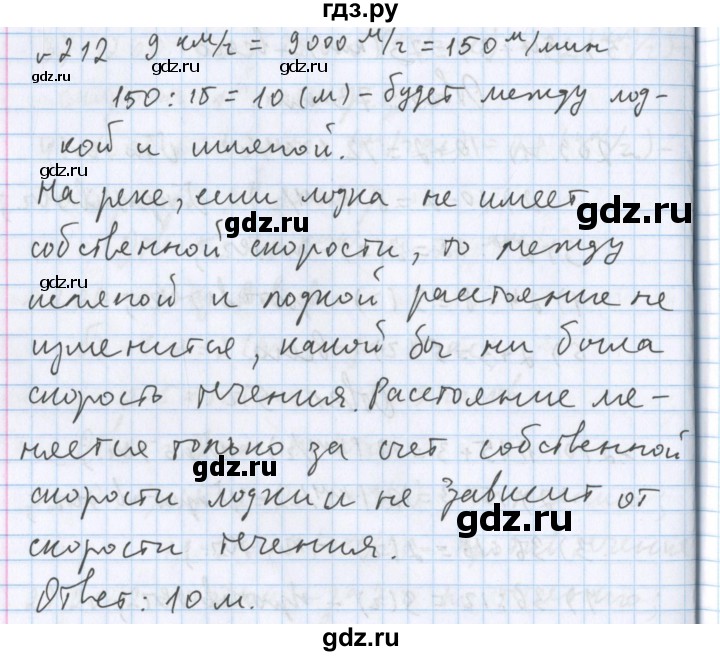 гдз.ру
№212 9 км/г = 9000 м/г = 150 м/мин
gdz.ru gdz.ru gdz.ru
150 : 15 = 10 (м) – будет между лод-
кой и шляпой.
gdz.ru
На реке, если лодка не имеет
gdz.ru gdz.ru
собственной скорости, то между
gdz.ru
шляпой и лодкой расстояние не
изменится, какой бы ни была
скорость течения. Расстояние ме-
няется только за счет собственной
gdz.ru
скорости лодки и не зависит от
gdz.ru
скорости течения.
Ответ: 10 м.
gdz.ru